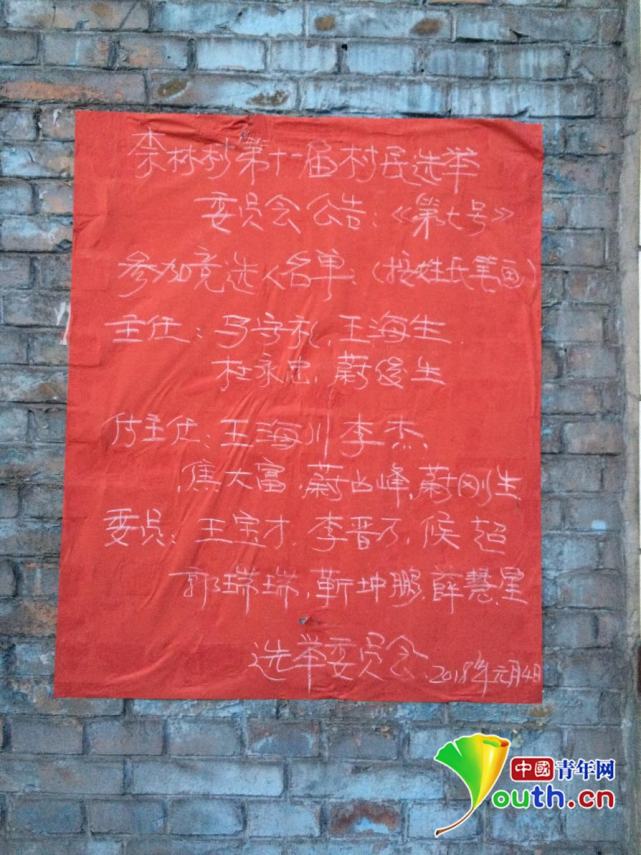 林村第十一届村民选举
委员会公告：《第七号》
参加竞选人名单：（按姓氏笔画）
主任：马守礼，王海生
杜永忠，蔚俊生
付主任：王海川李杰、
焦大富，蔚占峰，蔚刚生
委员：王宝才，李晋万，候超
郭瑞瑞，靳坤鹏，薛慧星
选举委员会 2018年元月4日
中國青年网
Youth.cn